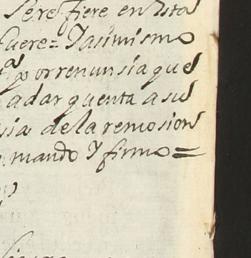 Se refiere en esta
fuere = Y asimismo
por renunsia que
a dar quenta a su
sia de la remosion
mando Y firmo =